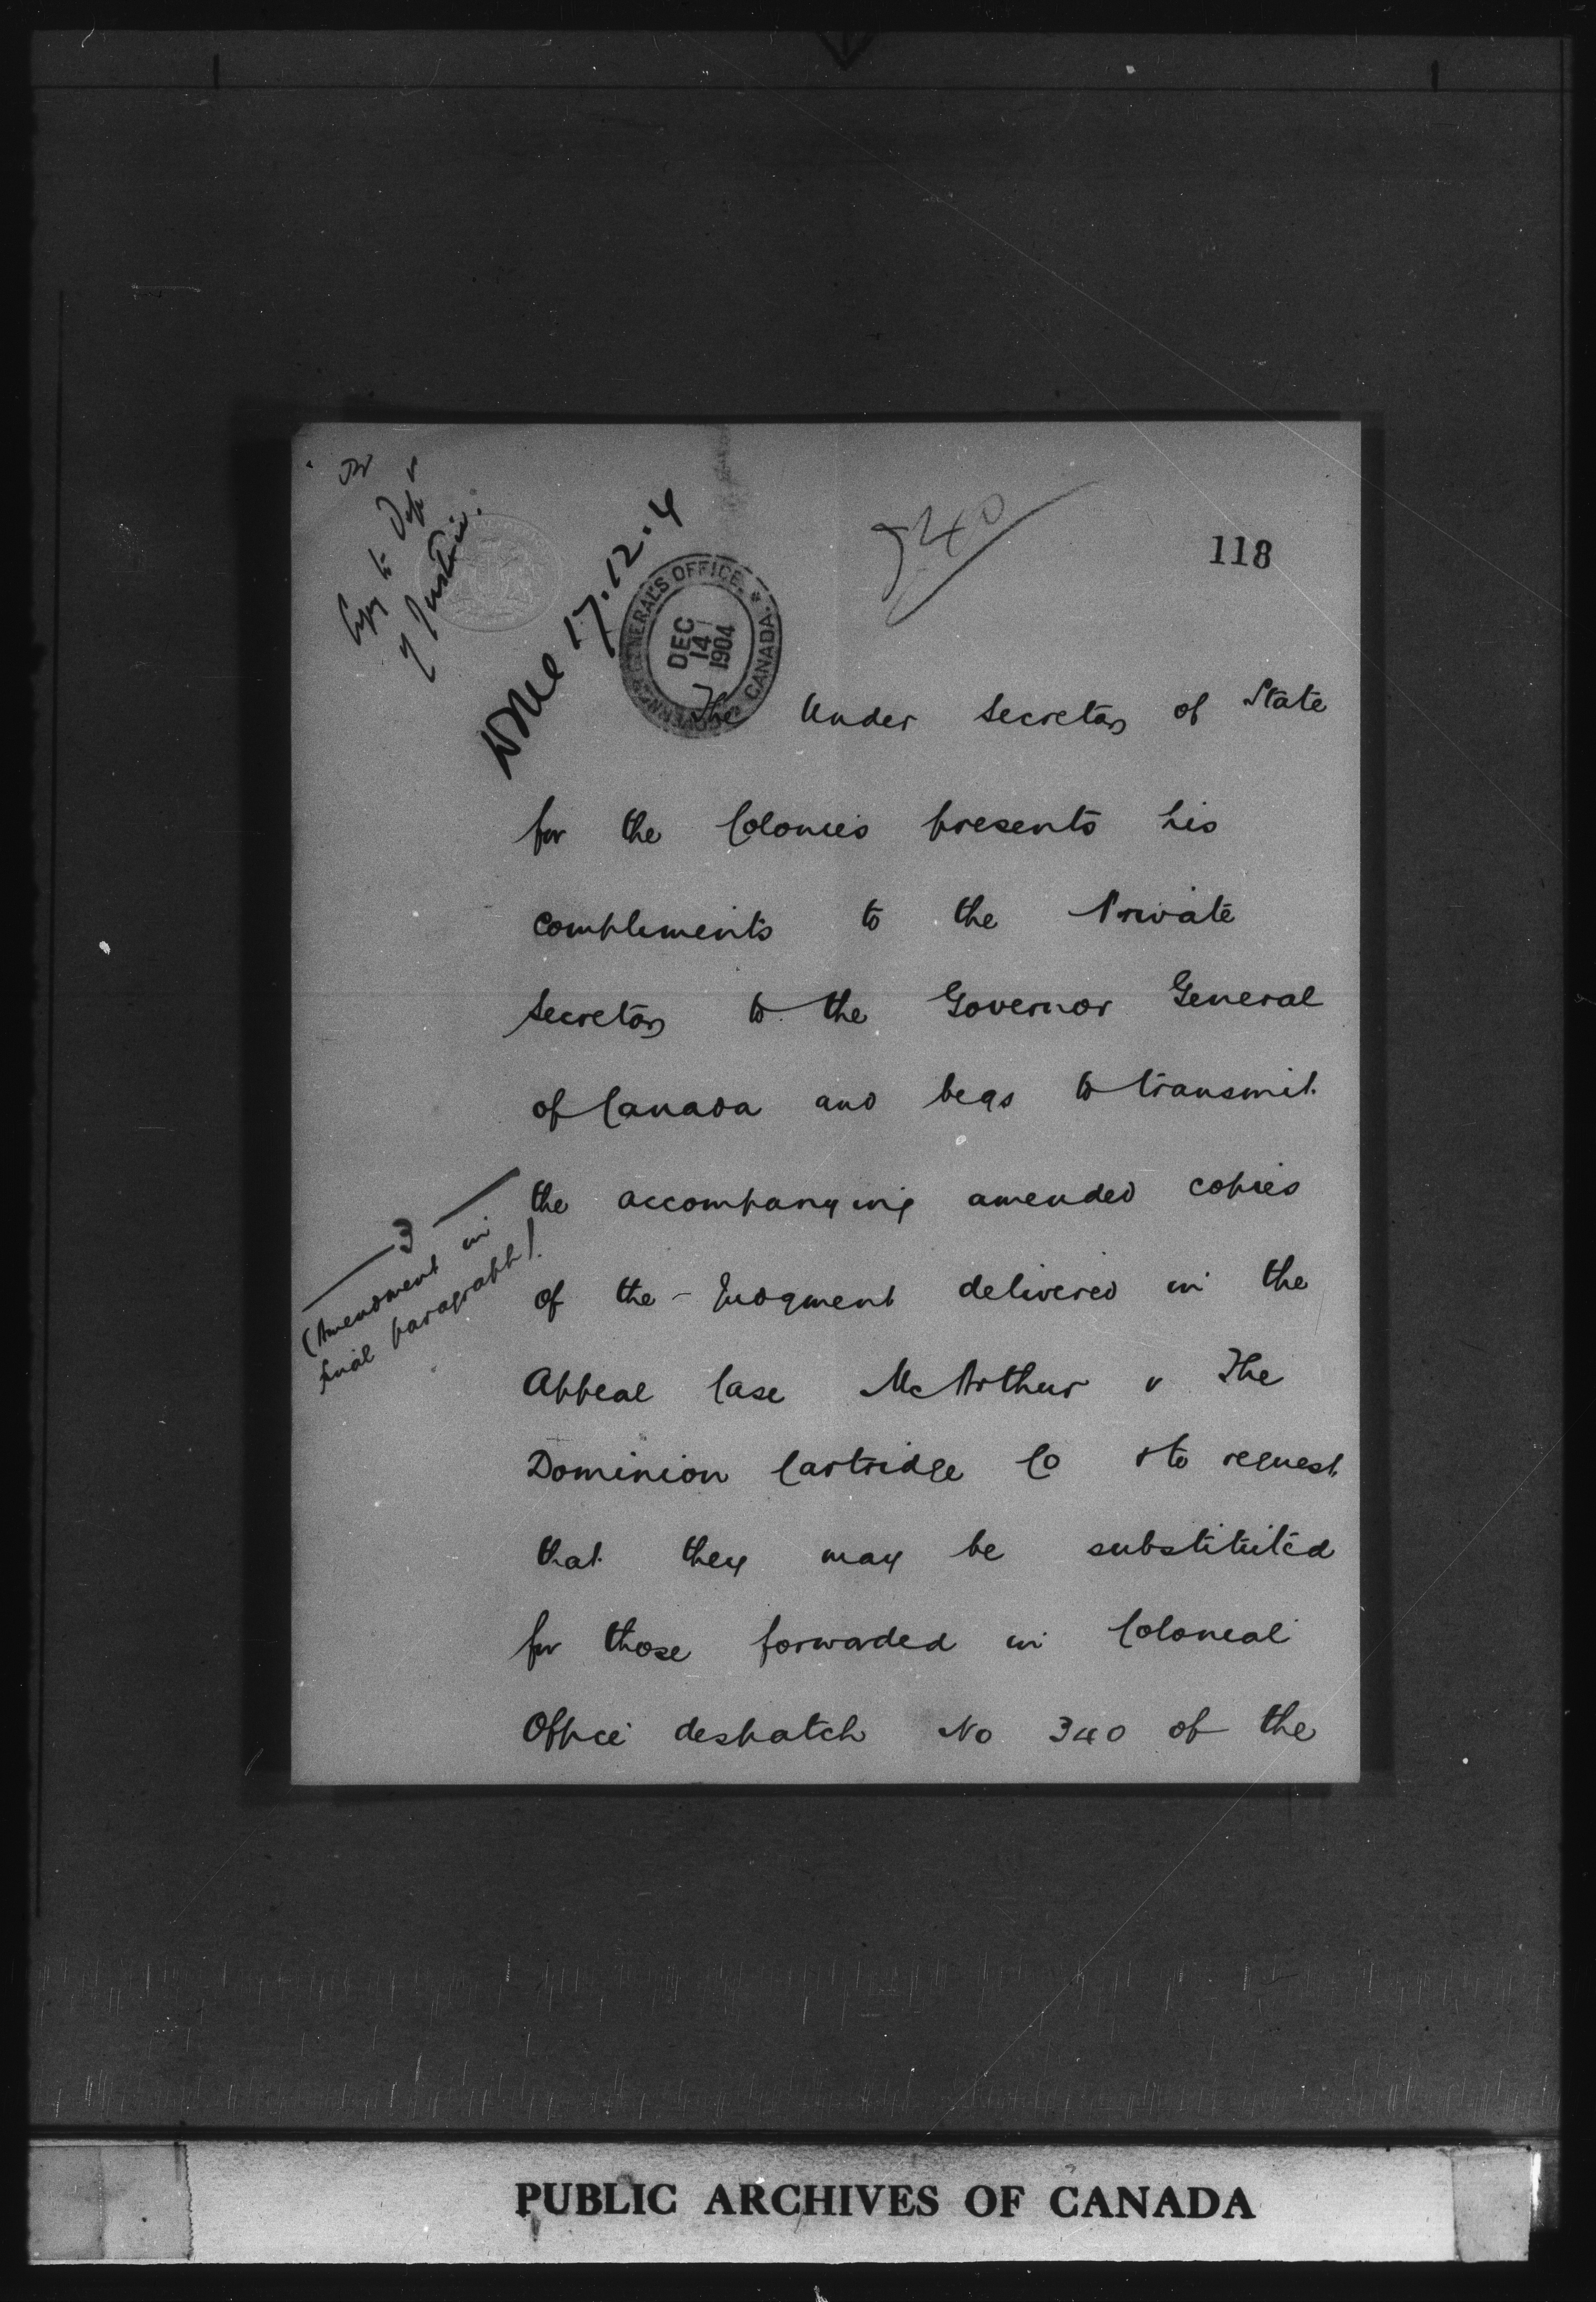 Copy to Dept
of Justice.
Done 17.12.4
GOVERNOR GENERAL'S OFFICE. * CANADA.
DEC
14
1904
340
118
The Under Secretary of State
for the Colonies presents his
compliments to the Private
Secretary to the Governor General
of Canada and begs to transmit
the accompanying amended copies
3
(Amendment in
final paragraph)
of the Judgment delivered in the
Appeal Case McArthur v The
Dominion Cartridge Co & to request
that they may be substituted
for those forwarded in Colonial
Office despatch No 340 of the
PUBLIC ARCHIVES OF CANADA